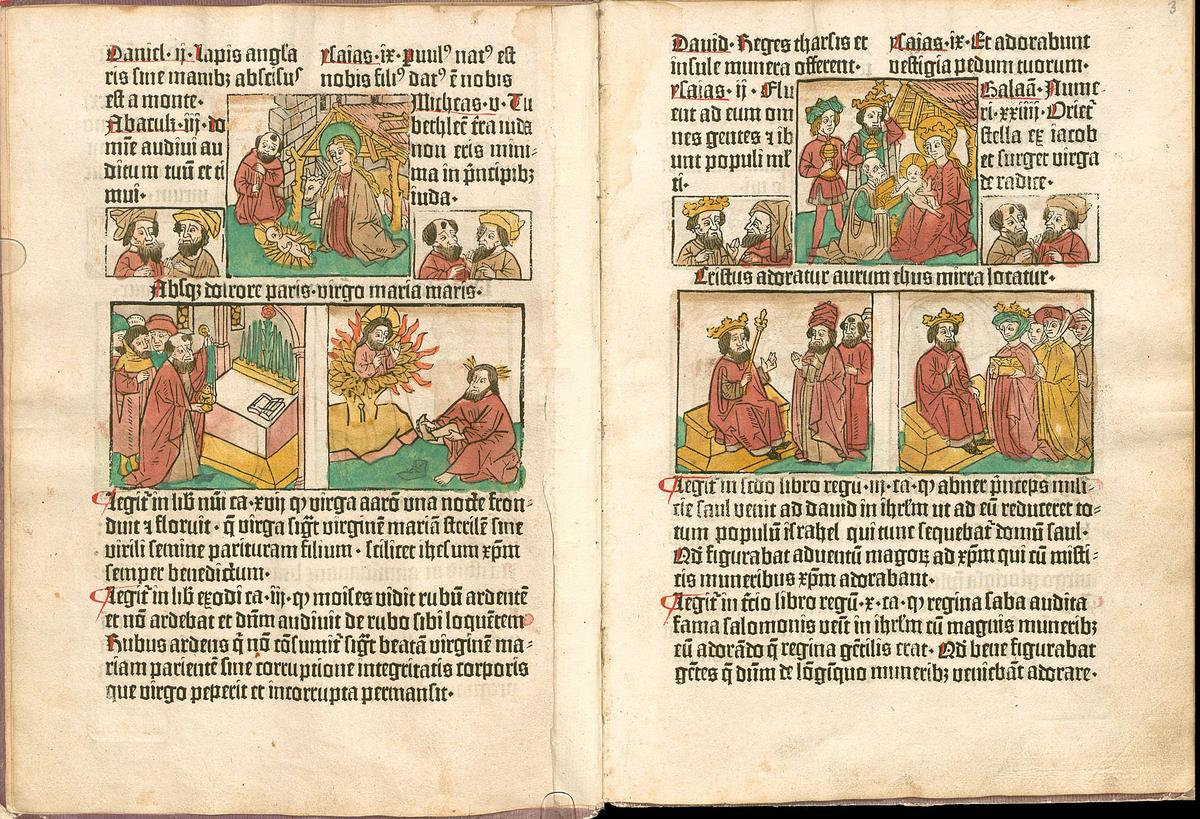 Daniel · ij · Lapis angla
ris sine manibꝫ abscisus
est a monte ·
Abacuk · iij · do
mĩe audiui au
ditum tuũ et ti
mui ·
ysaias · ix · Puulꝰ natꝰ est
nobis filiꝰ datꝰ ẽ nobis
Micheas · v · Tu
bethleẽ t̃ra iuda
non eris mini-
ma in p̃ncipibꝫ
iuda ·
Absqꝫ dolrore paris · virgo maria maris ·
Legit̃ in lib̃ nũi ca · xvij ꝙ virga aarõ vna nocte fron-
duit ⁊ floruit · q̃ virga sig̃t virginẽ mariã sterilẽ sine
virili semine parituram filium · scilicet ihesum xp̃m
semper benedictum ·
Legit̃ in lib̃ exodi ca · iij · ꝙ moises vidit rubũ ardentẽ
et nõ ardebat et dñm audiuit de rubo sibi loquẽtem
Rubus ardens q̃ nõ cõsumit̃ sig̃t beatã virginẽ ma-
riam parientẽ sine corruptione integritatis corporis
que virgo peperit et incorrupta permansit ·
3
Dauid · Reges tharsis et
insule munera offerent ·
ysaias · ij · Flu
ent ad eum om
nes gentes ⁊ ib
unt populi ml̃
ti ·
ysaias · ix · Et adorabunt
vestigia pedum tuorum ·
Balaã · Nume
ri · xxiiij · Oriet̃
stella ex iacob
et surget virga
de radice ·
Cristus adoratur aurum thus mirra locatur ·
Legit̃ in sc̃do libro regũ · iij · ca · ꝙ abner p̃nceps mili-
cie saul venit ad dauid in ihrl̃m ut ad eũ reduceret to-
tum populũ israhel qui tunc sequebat̃ domũ saul ·
Qđ figurabat aduentũ magoꝝ ad xp̃m qui cũ misti-
cis muneribus xp̃m adorabant ·
Legit̃ in t̃cio libro regũ · x · ca · ꝙ regina saba audita
fama salomonis veñt in ihrl̃m cũ magnis muneribꝫ
eũ adorãdo q̃ regina gẽtilis erat · Qđ bene figurabat
gẽtes q̃ dñm de lõgĩquo muneribꝫ veniebãt adorare ·